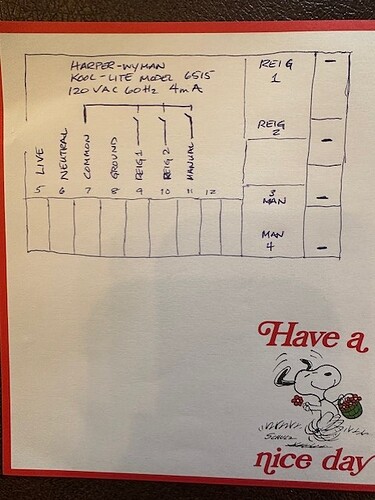 HARPER-WYMAN
KOOL-LITE MODEL 6515
120 VAC 60Hz 4mA
REIG
1
REIG
2
3
MAN
MAN
4
LIVE
NEUTRAL
COMMON
GROUND
REIG 1
REIG 2
MANUAL
5 6 7 8 9 10 11 12
Have a
SCHULZ
nice day